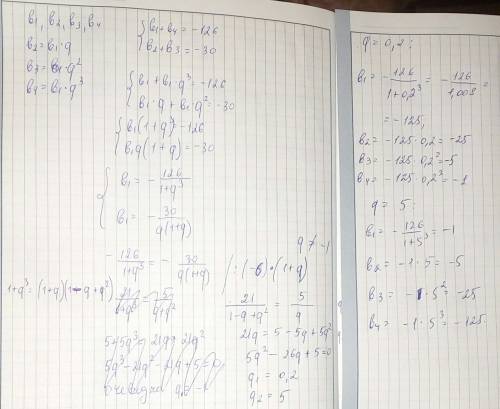 b₁, b₂, b₃, b₄
b₂ = b₁·q
b₃ = b₁·q²
b₄ = b₁·q³
{ b₁+b₄ = -126
b₂+b₃ = -30
{ b₁+b₁·q³ = -126
b₁·q + b₁·q² = -30
{ b₁(1+q³) = -126
b₁q(1+q) = -30
{ b₁ = -126/(1+q³)
b₁ = -30/(q(1+q))
q ≠ -1
-126/(1+q³) = -30/(q(1+q)) | :(-6)·(1+q)
1+q³ = (1+q)(1-q+q²)
21/(1+q³) = 5/(q+q²)
5+5q³ = 21q+21q²
5q³-21q²-21q+5=0
очевидно q₁ = -1
21/(1-q+q²) = 5/q
21q = 5-5q+5q²
5q²-26q+5=0
q₁ = 0,2
q₂ = 5
q = 0,2:
b₁ = -126/(1+0,2³) = -126/1,008 =
= -125,
b₂ = -125·0,2 = -25
b₃ = -125·0,2² = -5
b₄ = -125·0,2³ = -1
q = 5:
b₁ = -126/(1+5³) = -1
b₂ = -1·5 = -5
b₃ = -1·5² = -25
b₄ = -1·5³ = -125.